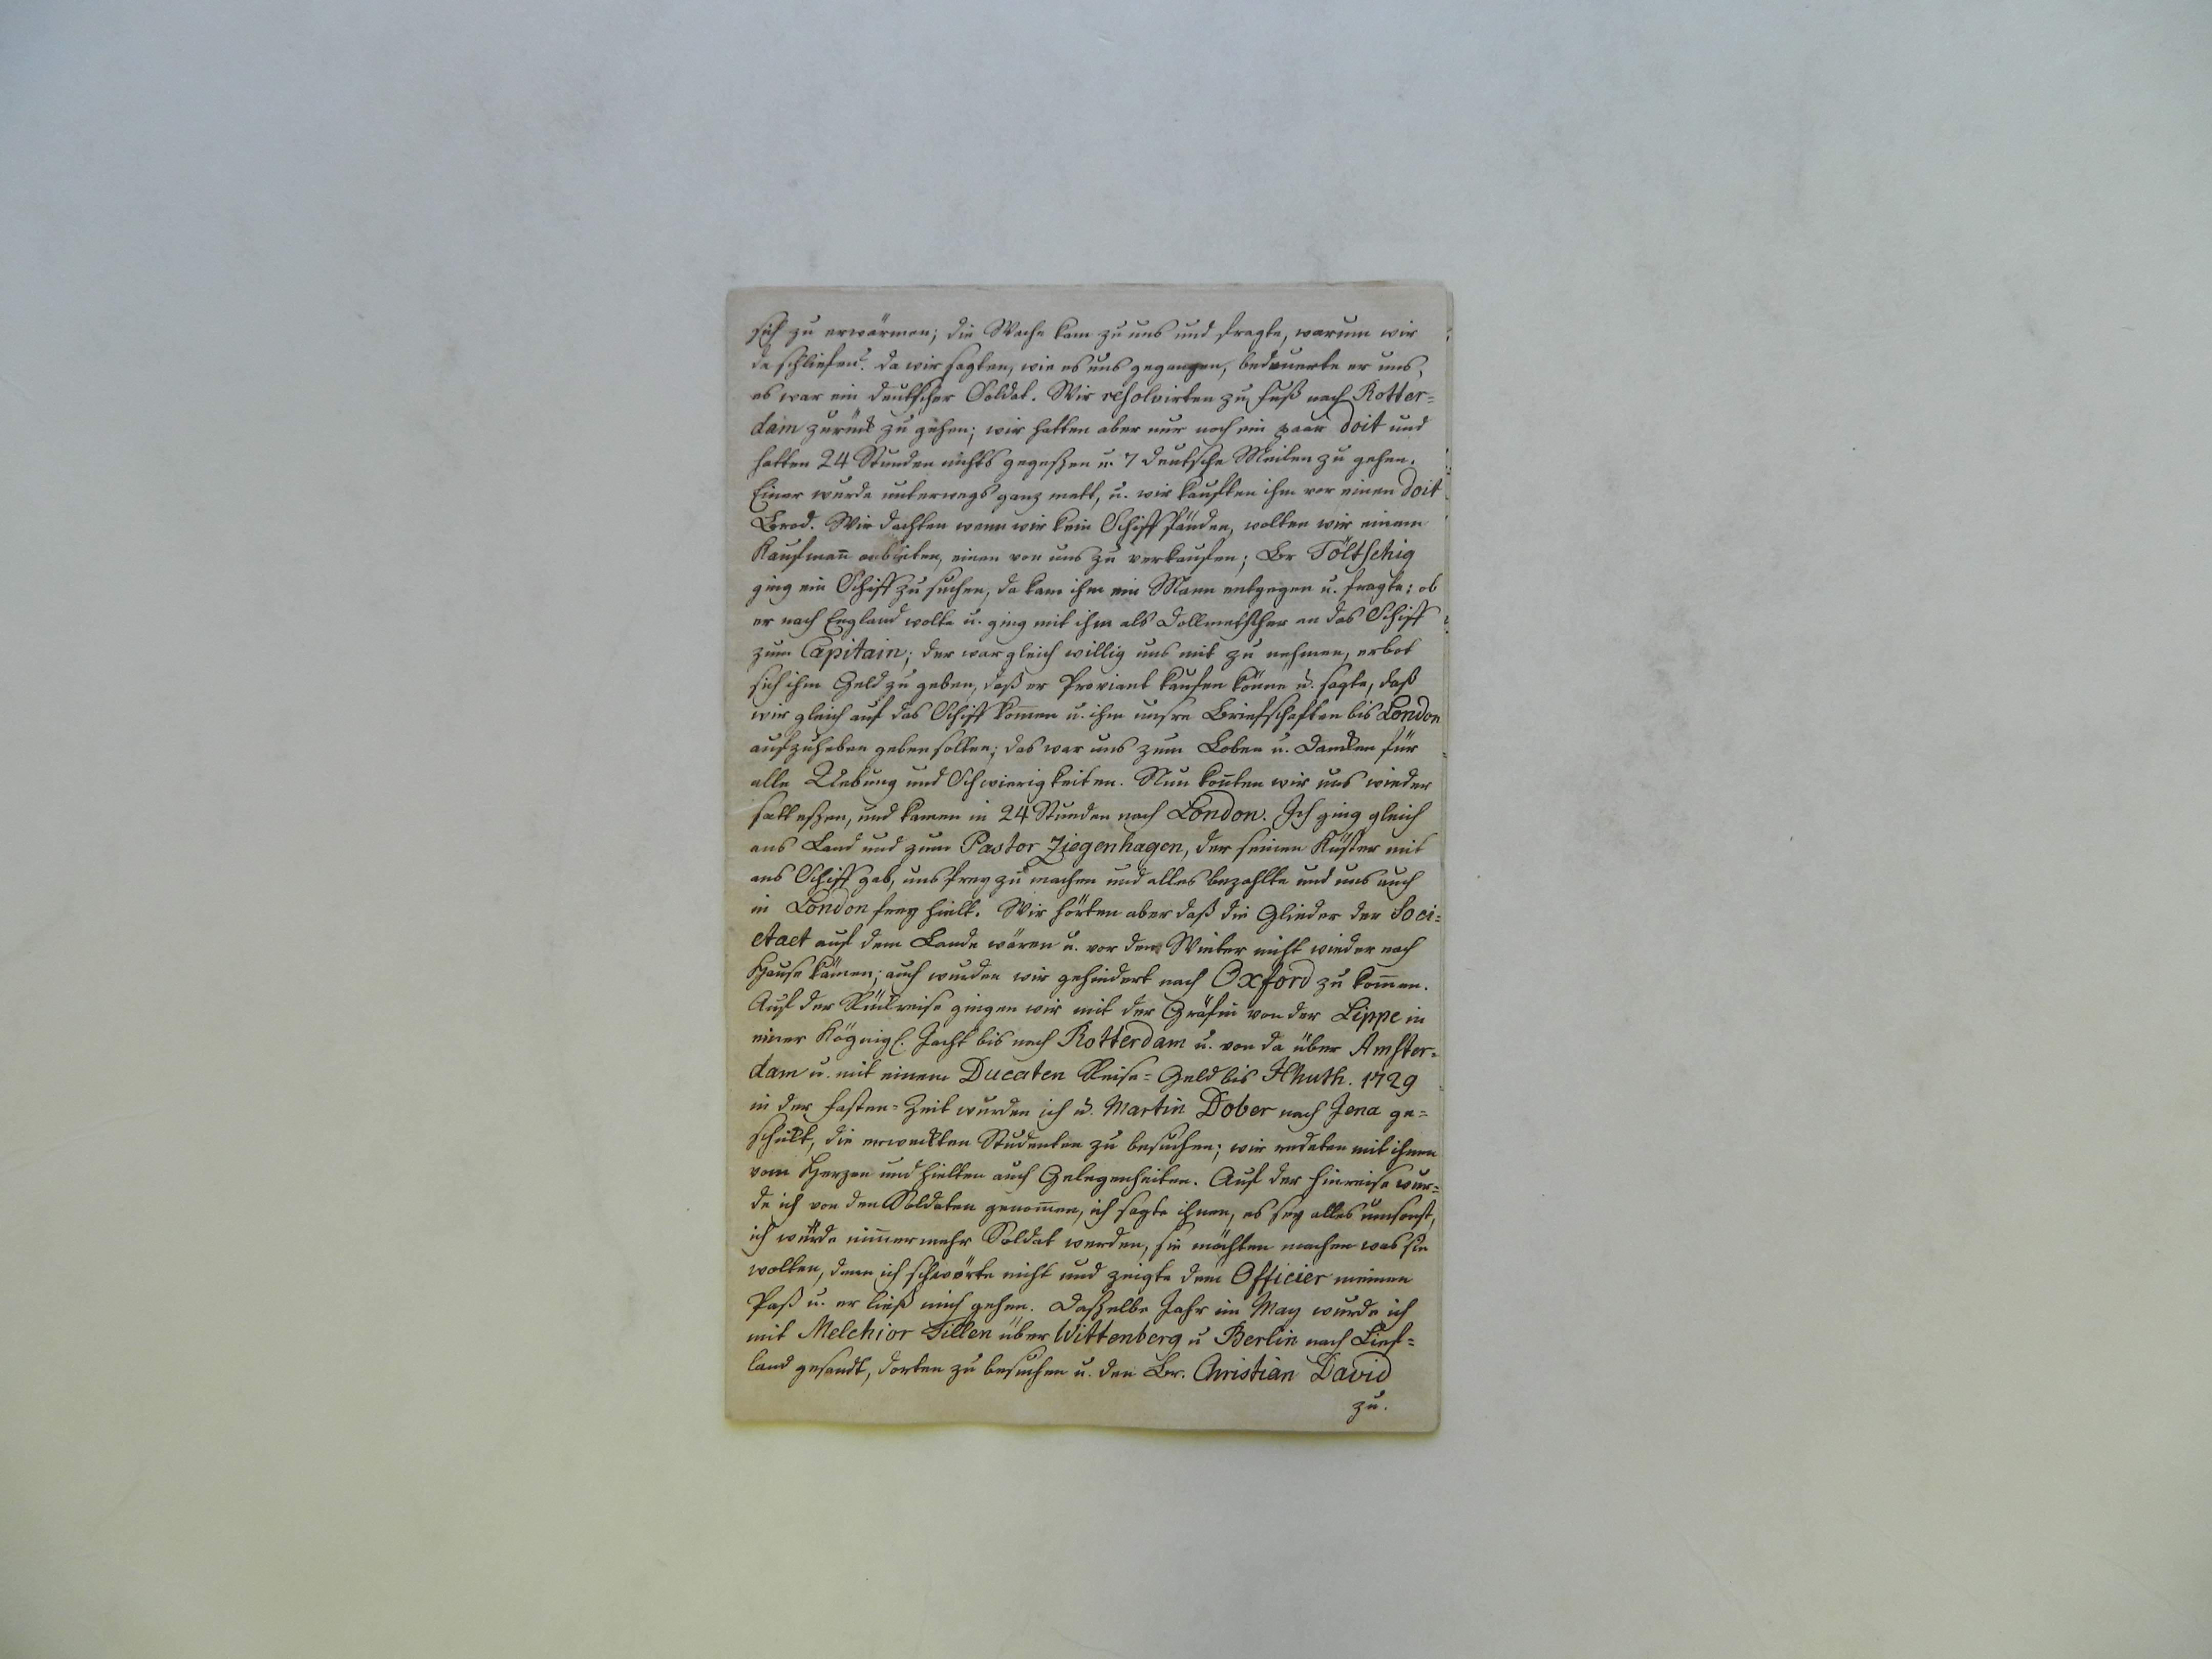 sich zu erwärmen; die Wache kam zu uns und fragte, warum wir
da schliefen? da wir sagten, wie es uns gegangen, bedauerte er uns,
es war ein deutscher Soldat. Wir resolvirten zu Fuß nach Rotter=
dam zurük zu gehen; wir hatten aber nur noch ein paar doit und
hatten 24 Stunden nichts gegeßen u. 7 deutsche Meilen zu gehen.
Einer wurde unterwegs ganz matt, u. wir kauften ihm vor einen doit
Brod. Wir dachten wenn wir kein Schiff fänden, wolten wir einem
Kaufmañ anbieten, einen von uns zu verkaufen; Br Töltschig
ging ein Schiff zu suchen, da kam ihm ein Mann entgegen u. fragte: ob
er nach England wolte u. ging mit ihm als Dollmetscher an das Schiff
zum Capitain; der war gleich willig uns mit zu nehmen, erbot
sich ihm Geld zu geben, daß er Proviant kaufen könne u. sagte, daß
wir gleich auf das Schiff kom̄en u. ihm unsre Briefschaften bis London
aufzuheben geben solten; das war uns zum Loben u. Danken für
alle Uebung und Schwierigkeiten. Nun koñten wir uns wieder
satt eßen, und kamen in 24 Stunden nach London. Ich ging gleich
ans Land und zum Pastor Ziegenhagen, der seinen Küster mit
ans Schiff gab, uns frey zu machen und alles bezahlte und uns auch
in London frey hielt. Wir hörten aber daß die Glieder der Soci=
etaet auf dem Lande wären u. vor dem Winter nicht wieder nach
Hause kämen; auch wurden wir gehindert nach Oxford zu kom̄en.
Auf der Rükreise gingen wir mit der Gräfin von der Lippe in
einer Königl. Jacht bis nach Rotterdam u. von da über Amster=
dam u. mit einem Ducaten Reise=Geld bis Hhuth. 1729
in der Fasten=Zeit wurden ich u. Martin Dober nach Jena ge=
schikt, die erwekten Studenten zu besuchen; wir redeten mit ihnen
vom Herzen und hielten auch Gelegenheiten. Auf der Hinreise wur=
de ich von den Soldaten genom̄en, ich sagte ihnen, es sey alles umsonst,
ich würde nim̄ermehr Soldat werden, sie möchten machen was sie
wolten, denn ich schwörte nicht und zeigte dem Officier meinen
Paß u. er ließ mich gehen. Daßelbe Jahr im May wurde ich
mit Melchior Zillen über Wittenberg u Berlin nach Lief=
land gesandt, dorten zu besuchen u. den Br. Christian David
zu.